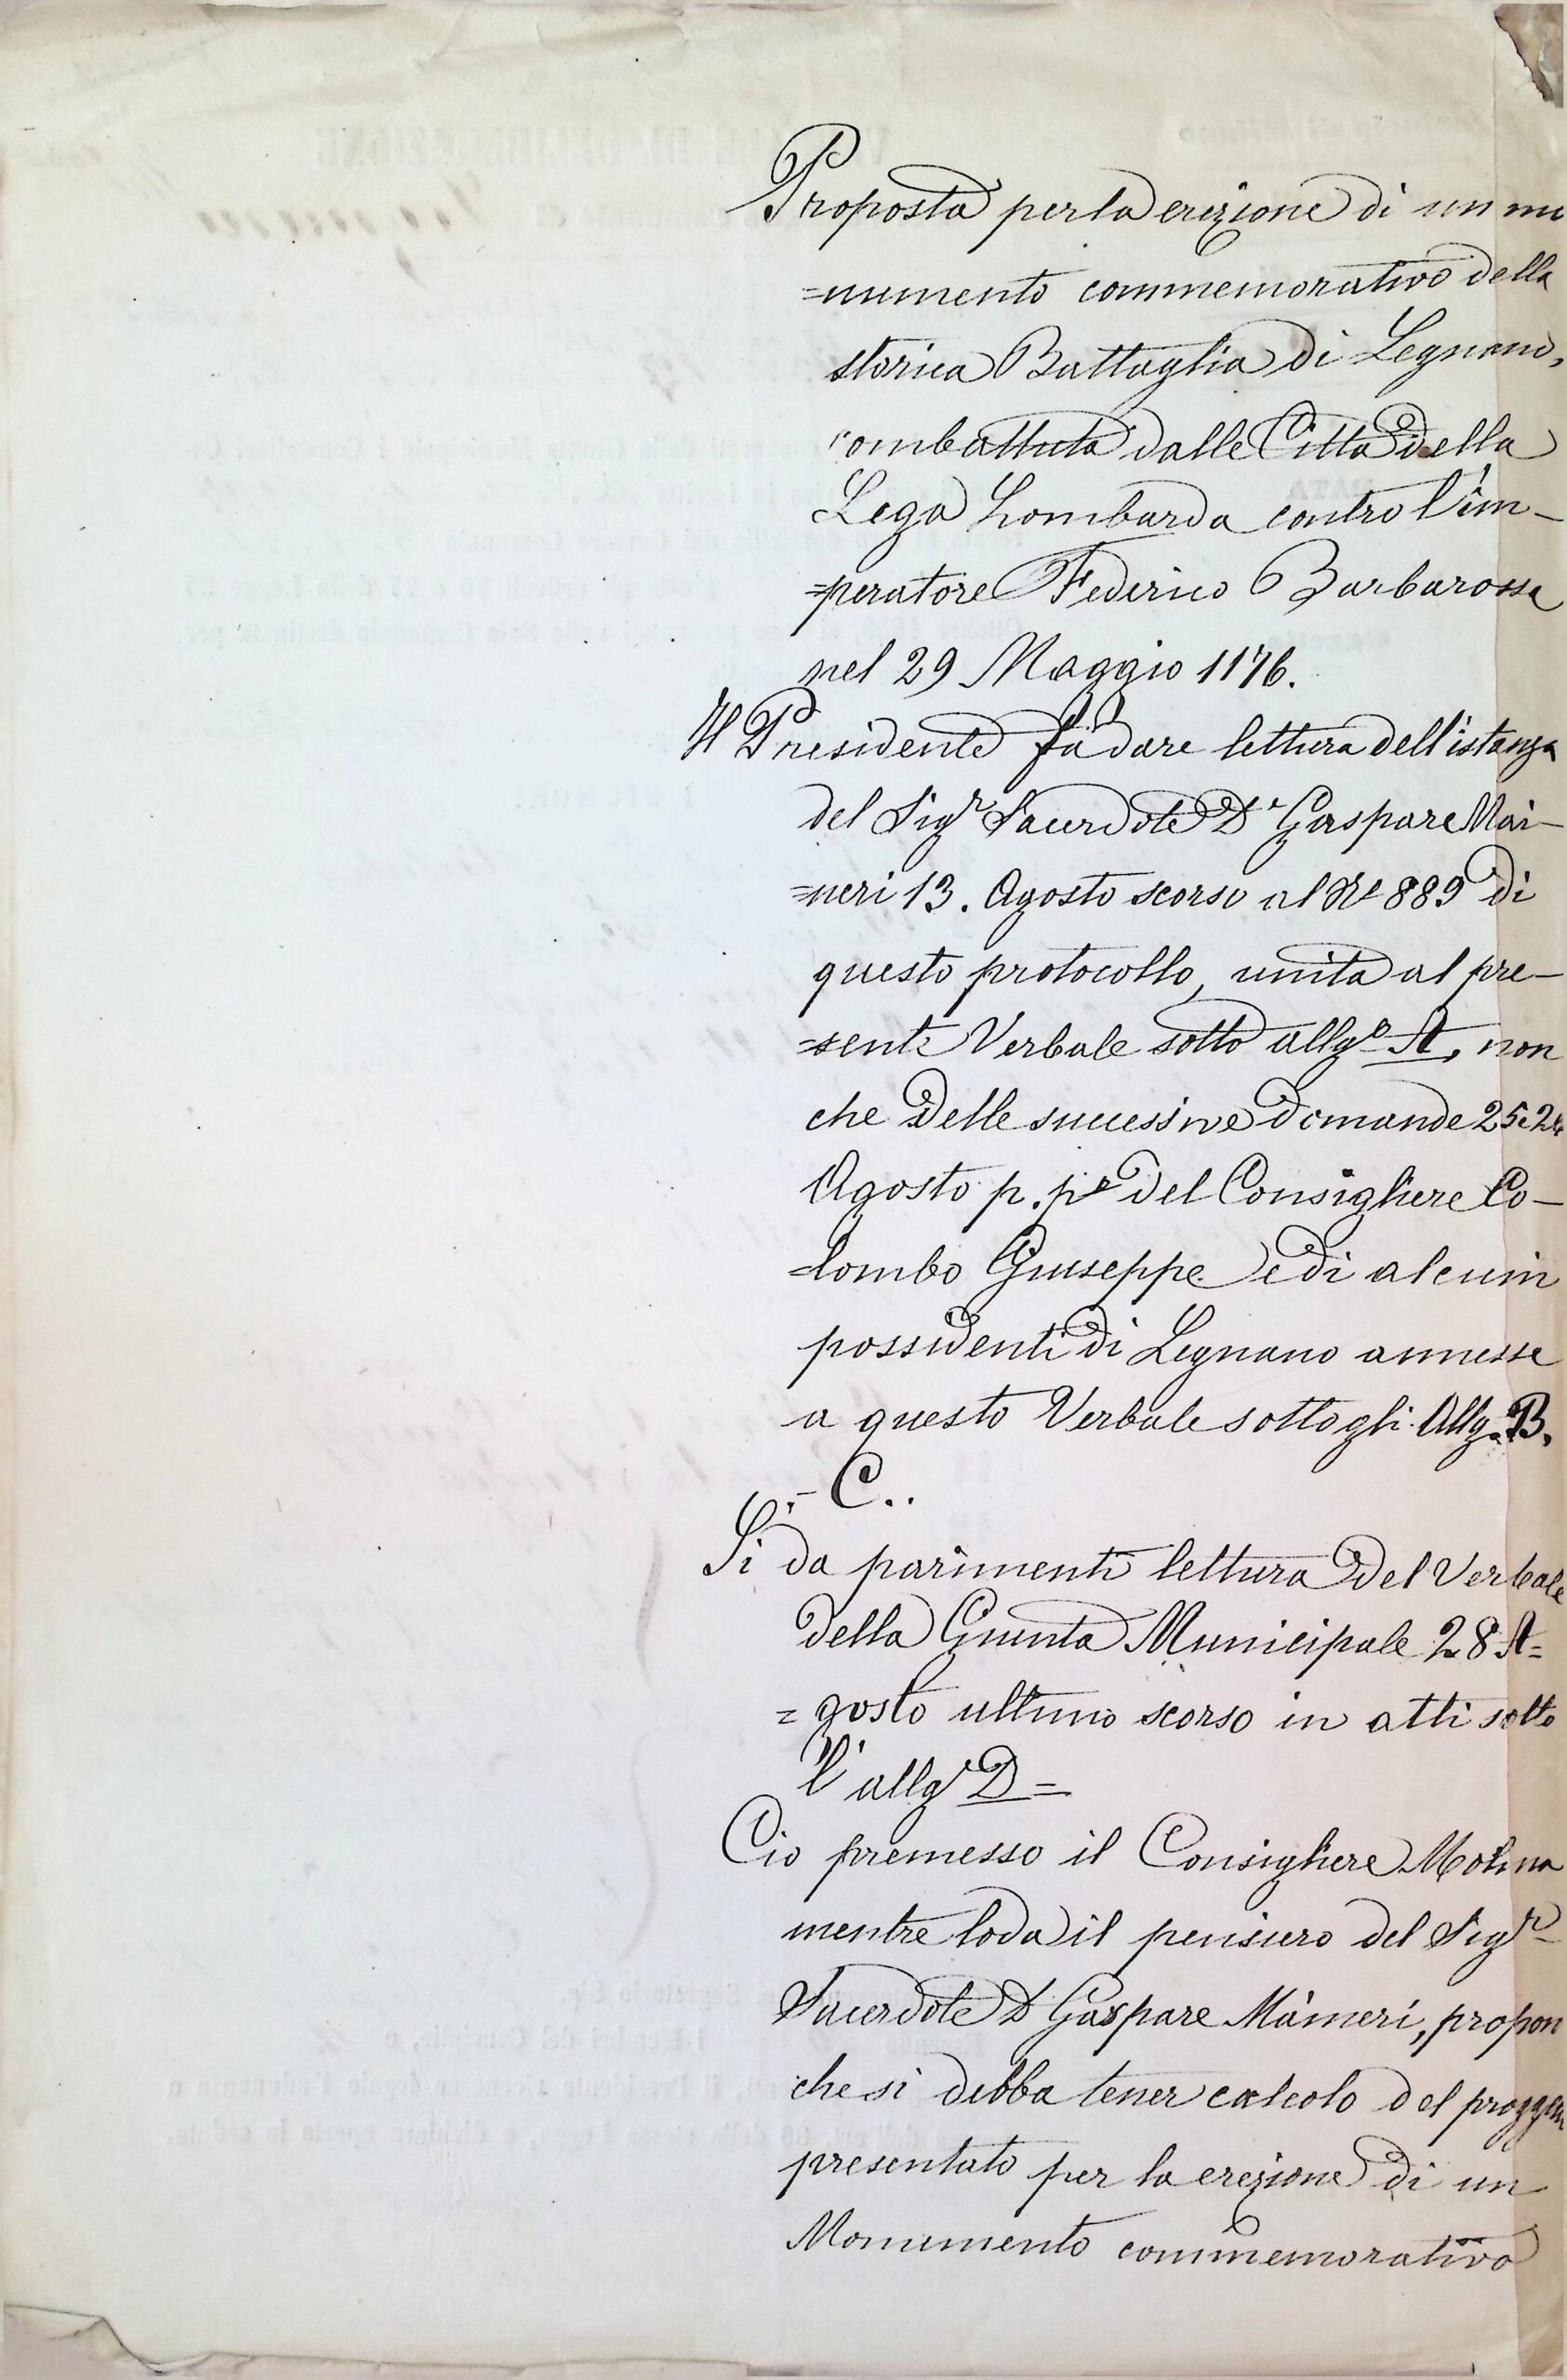 Proposta per la erezione di un mu
=numento commemorativo della
storica Battaglia di Legnano,
combattuta dalle Città della
Lega Lombarda contro l'im-
=peratore Federico Barbarossa
nel 29 Maggio 1176.
Il Presidente fà dare lettura dell'istanza
del Sigr Sacerdote Dn Gaspare Mai-
=neri 13. Agosto scorso al No 889 di
questo protocollo, unita al pre-
=sente Verbale sotto allgo A, non
che delle successive domande 25. 24
Agosto p. po del Consigliere Co-
=lombo Giuseppe e di alcuni
possidenti di Legnano annesse
a questo Verbale sotto gli Allg. B.
- C..
Si da parimenti lettura del Verbale
della Giunta Municipale 28 A=
=gosto ultimo scorso in atti sotto
l'allgo D=
Cio premesso il Consigliere Molina
mentre loda il pensiero del Sigr
Sacerdote D Gaspare Màineri, propon
che si debba tener calcolo del
presentato per la erezione di un
Monumento commemorativo